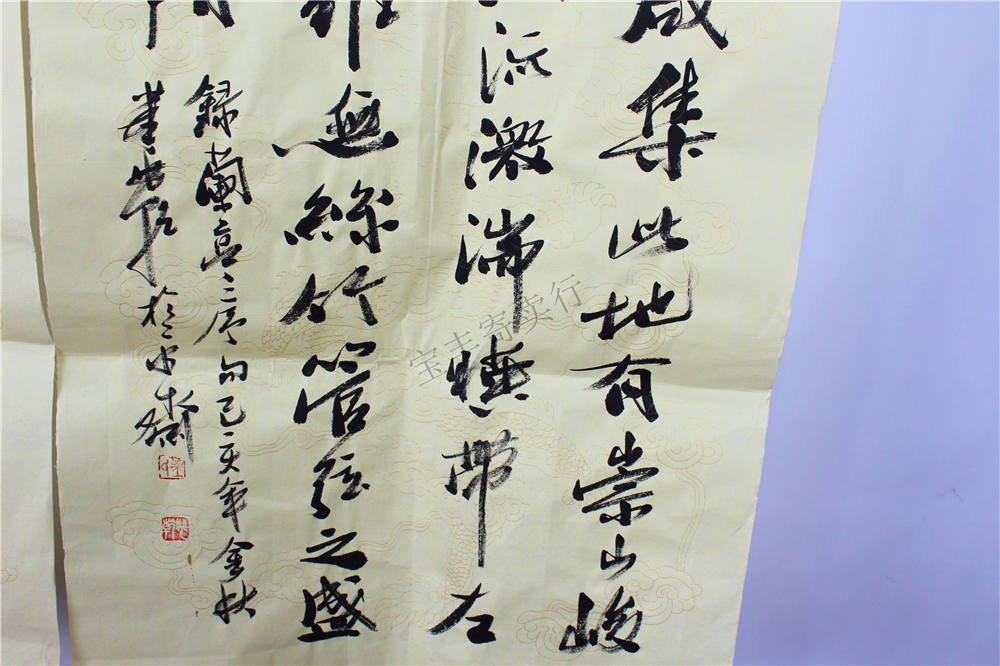 咸集此地有崇山峻
流激湍暎带左
雖無絲竹管弦之盛
録蘭亭序句己亥年金秋
於
宝丰寄卖行